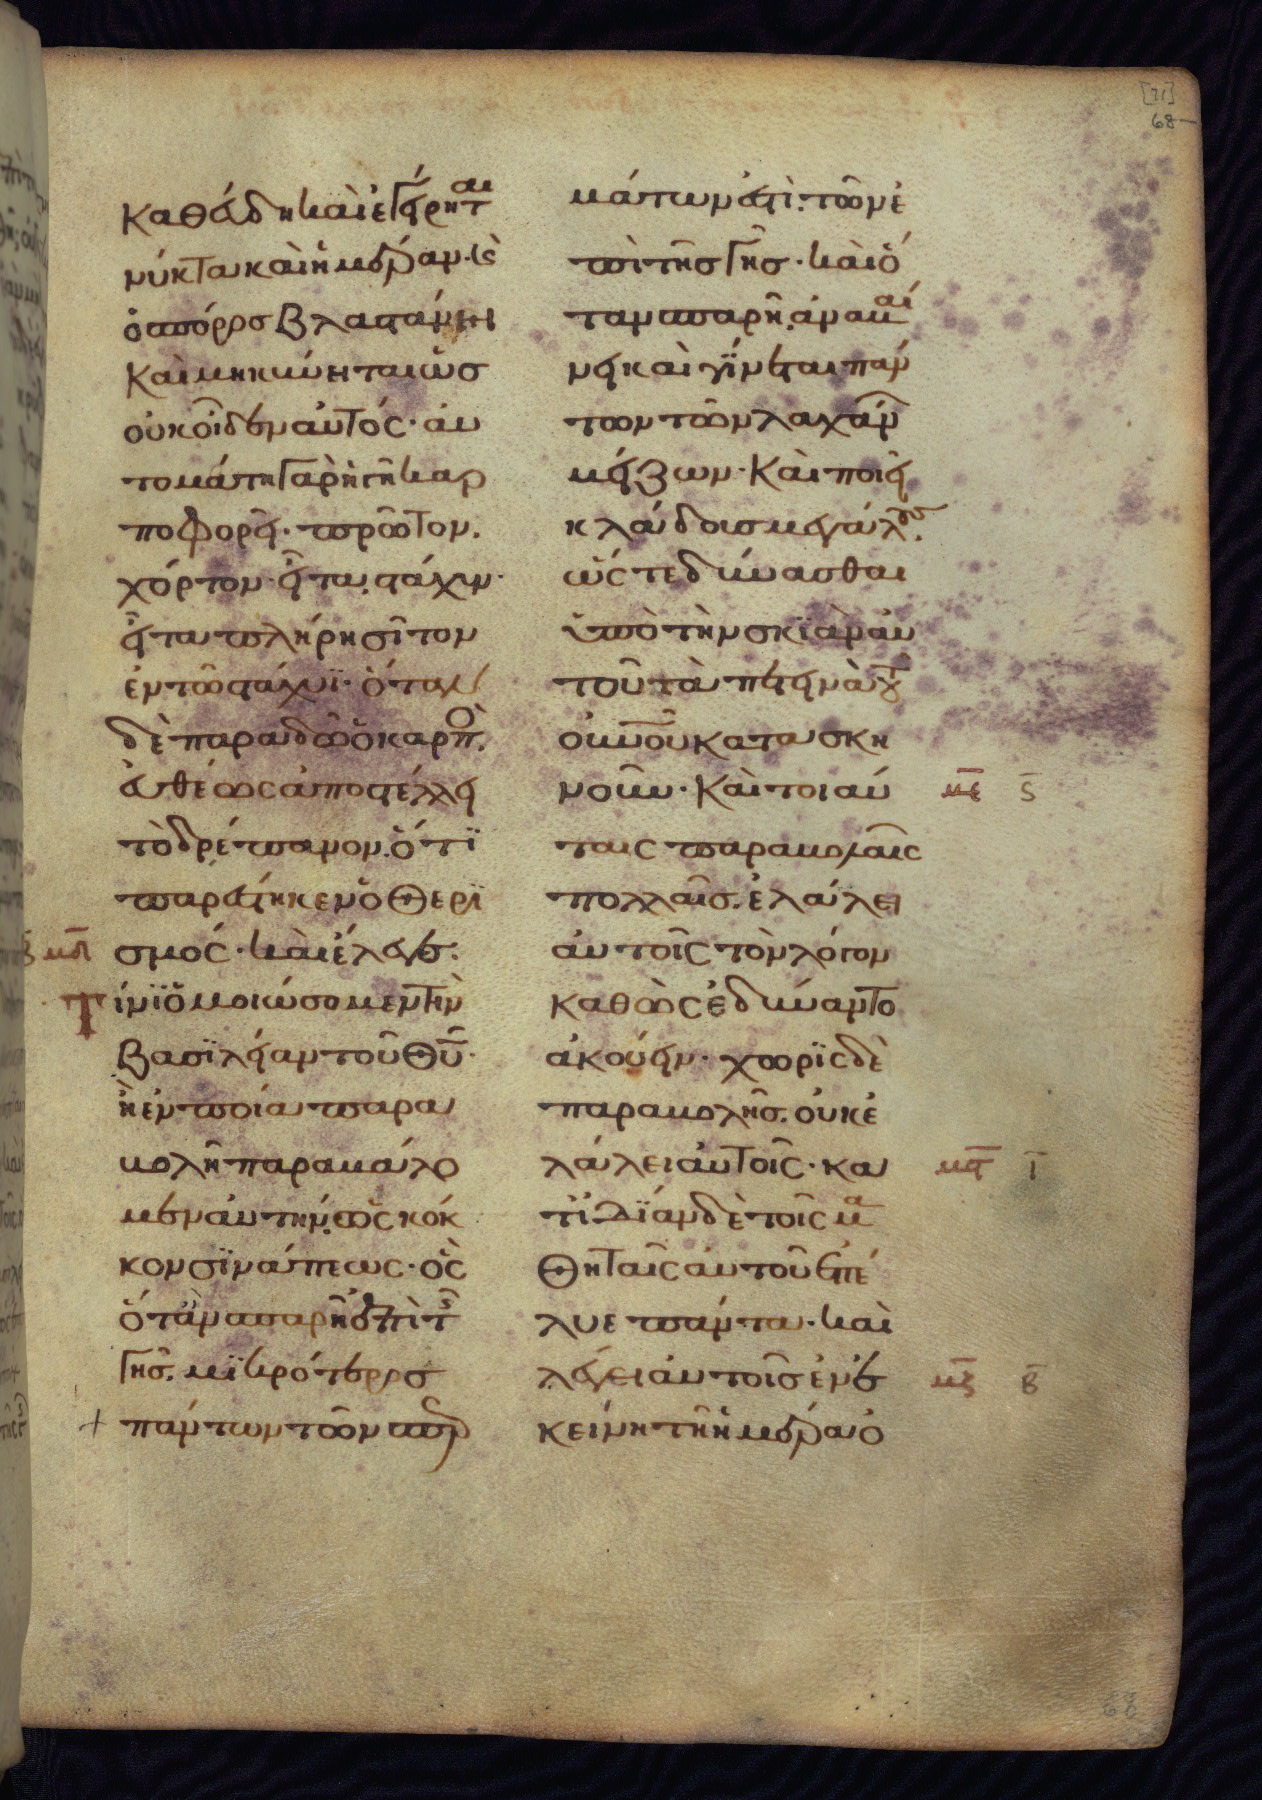 [71]
68
καθεύδη καὶ ἐγείρητ αι
νύκτα καὶ ἡμέραν· κ(αὶ)
ὁ σπόρος βλαστάνῃ
καὶ μηκύνηται ὡσ
οὐκ οἶδεν αὐτός· αυ
τομάτη γαρ ἡ γῆ καρ
ποφορεῖ· πρῶτον.
χόρτον· εἶτα. στάχυν·
εἶτα πλήρη σῖτον
ἐν τῶ στάχυϊ· ὅταν
δὲ παραδῶ ὁ καρπ ὸ.
εὐθέως ἀποστέλλει
τὸ δρέπανον. ὅτϊ
παρέστηκεν ὁ θερϊ
μδ σμός· καὶ ἔλεγε:
Τίνϊ ὁμοιώσομεν τὴν
βασϊλείαν τοῦ Θῦ·
ἢ ἐν ποία παρα
βολῆ παραβάλο
μεν αὐτήν. ὡς κόκ
κον σϊνάπεως· ὃς
ὅταν σπαρῆ ἐπὶ τῆ
γῆς. μϊκρότερος
+ πάντων τῶν σπερ
μάτων ἐστὶ. τῶν ἐ
πὶ τῆς γῆς· καὶ ὅ
ταν σπαρῆ. ἀναβ αί
νει καὶ γίνεται πάν
των τῶν λαχάν
μείζων· Καὶ ποιεῖ
κλάδους μεγάλ ους.
ὥς τε δύνασθαι
ὑπὸ τὴν σκϊὰν αὐ
τοῦ τὰ πετεινὰ τοῦ
οὐνοῦ κατασκη
νοῦν· Καὶ τοιαύ με ς
ταις παραβολαῖς
πολλαῖς. ἐλάλει
αὐτοῖς τὸν λόγον
καθὼς ἐδύναντο
ἀκούειν· χωρὶς δὲ
παραβολῆς. οὐκ ἐ
λάλει αὐτοῖς· κα μϛ ι
τ' ἰδίαν δὲ τοῖς μα
θηταῖς αὐτοῦ ἐπέ
λυε πάντα· καὶ
λέγει αὐτοῖς ἐν ἐ μζ β
κείνη τῆ ἡμέρα ὀ
68